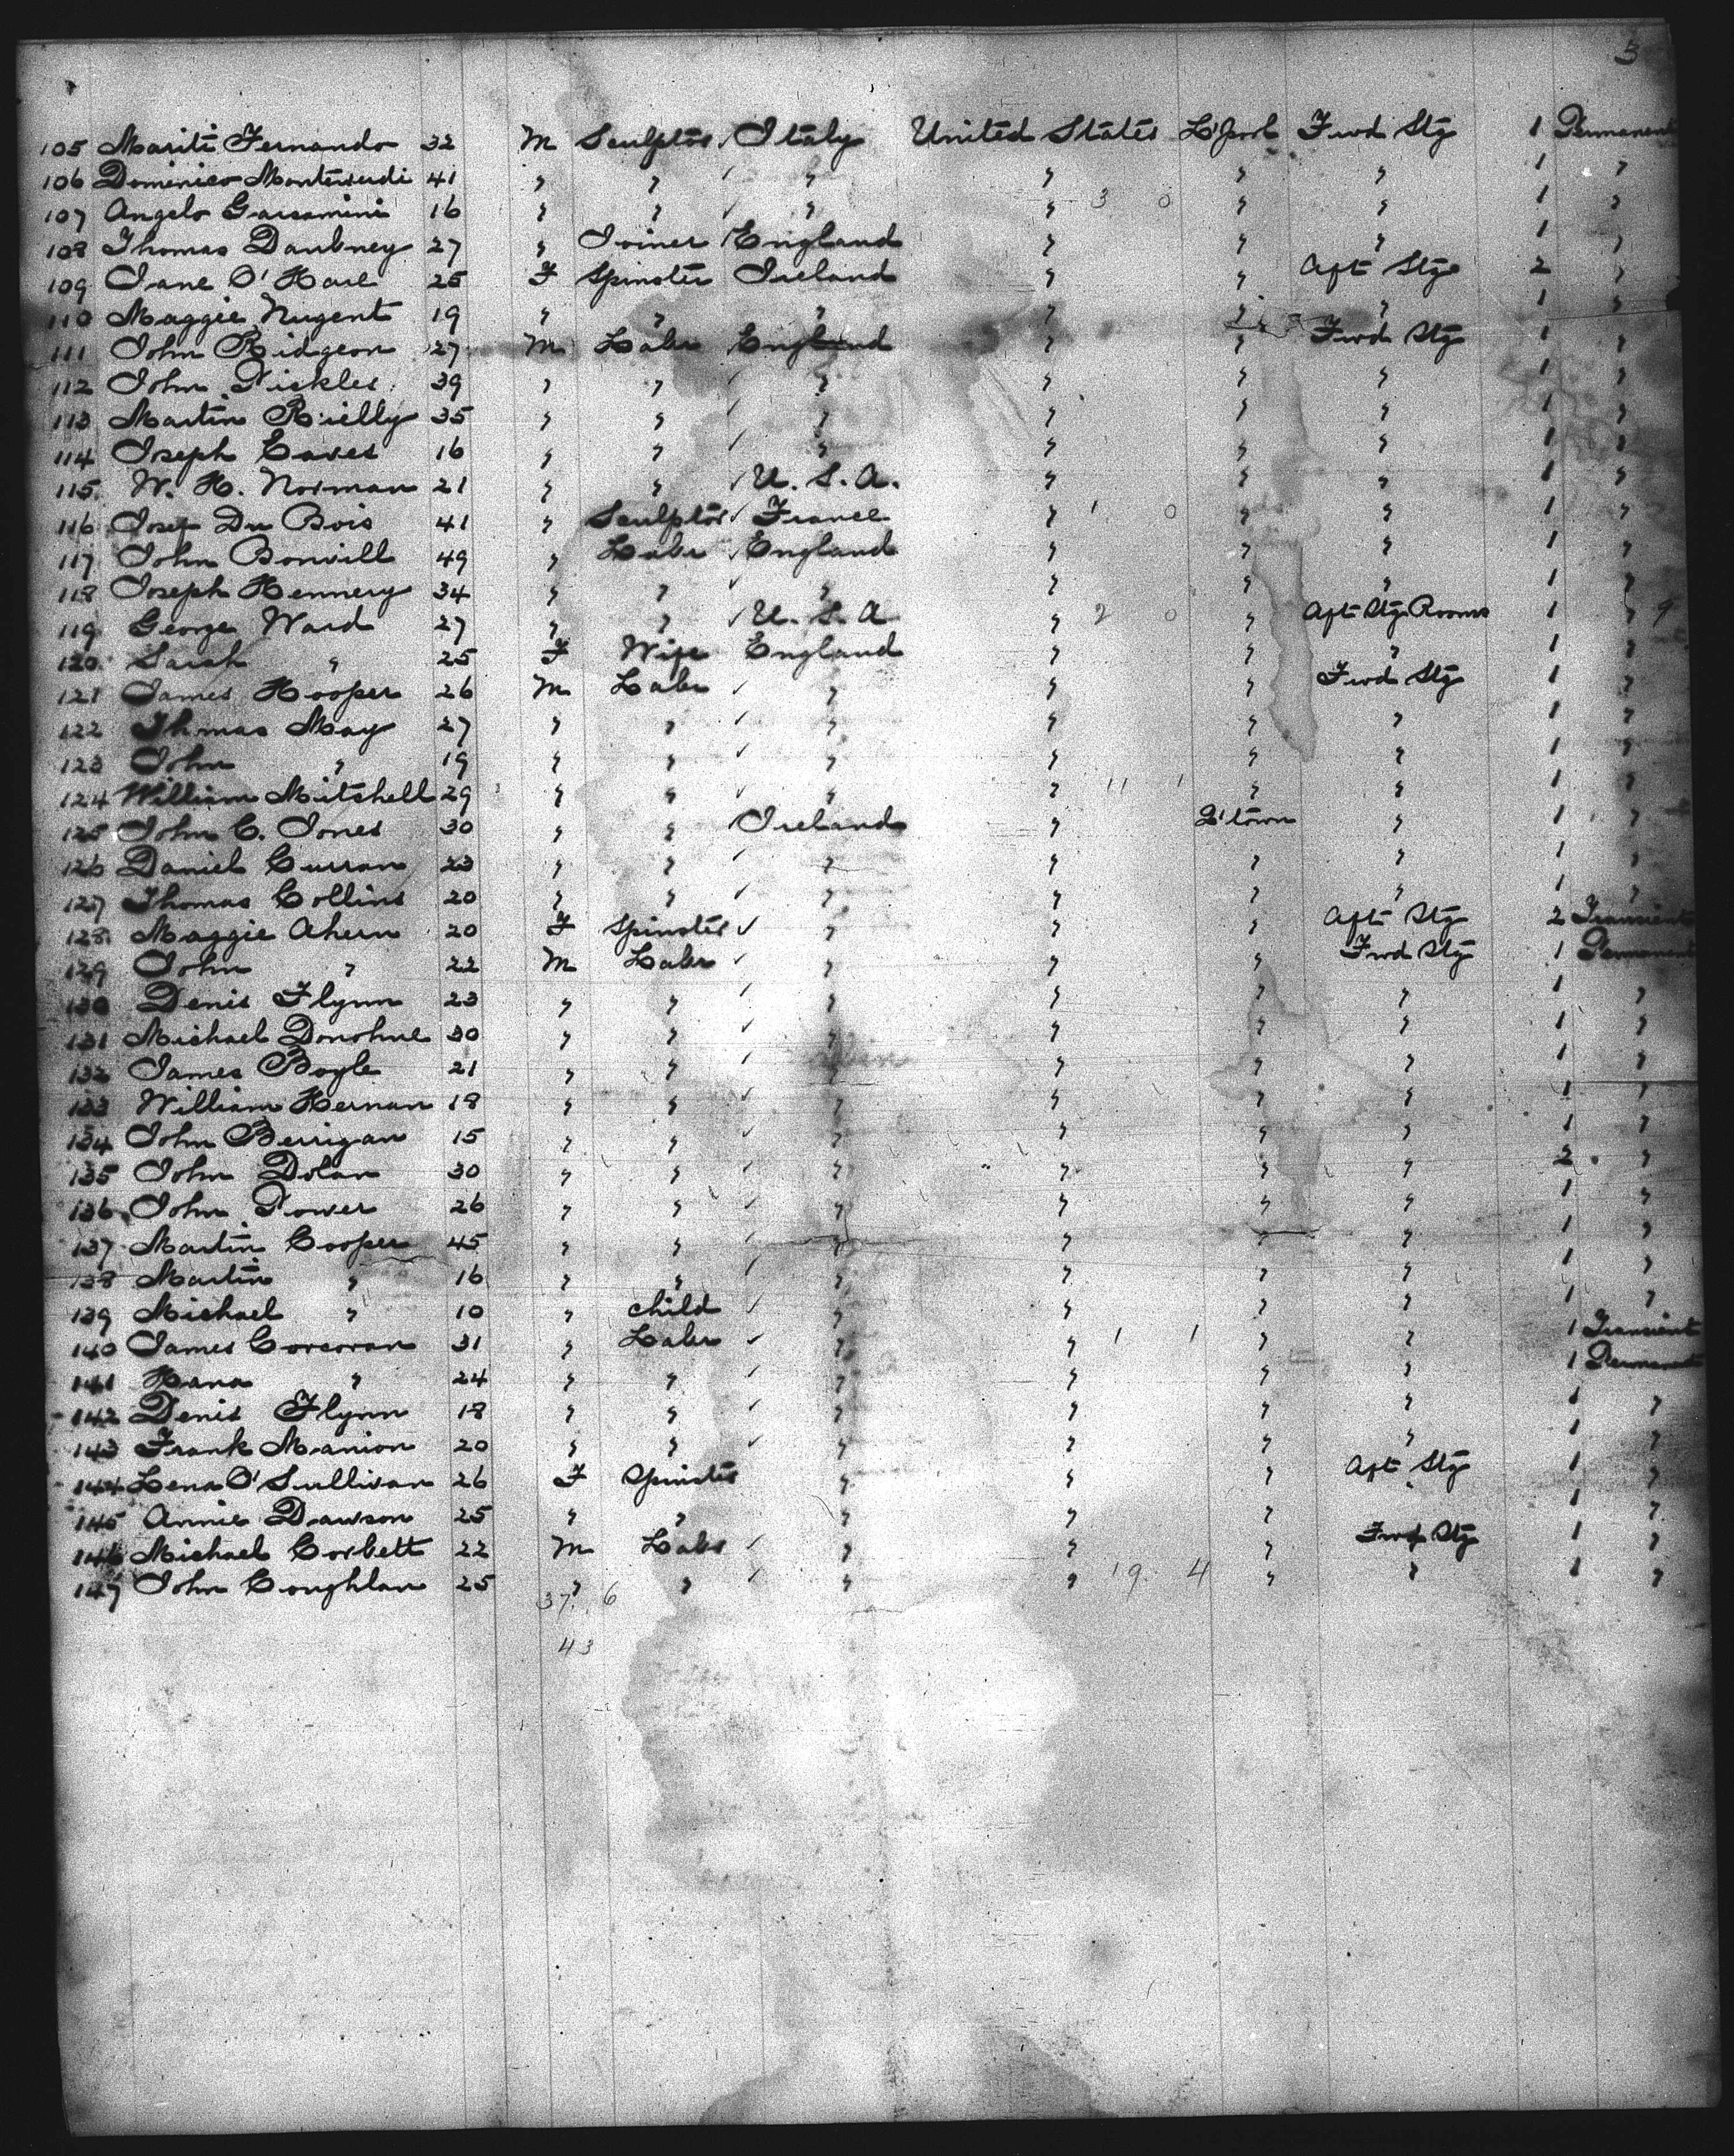 3
105 Mariti Fernando 32 M Sculptor Italy United States L'pool Fwd Stg 1 Permanent
106 Domenico Monteverdi 41 " " " " " " 1 "
107 Angelo 16 " " " " 3 0 " " 1 "
108 Thomas Daubney 27 " Joiner England " " " 1 "
109 Jane O'Hare 25 F Spinster Ireland " " Aft Stg 2 "
110 Maggie Nugent 19 " " " " " " 1 "
111 John Ridgeon 27 M Labr England " " Fwd Stg 1 "
112 John Pickles 39 " " " " " " 1 "
113 Martin Rielly 35 " " " " " " 1 "
114 Joseph Eaves 16 " " " " " " 1 "
115 W. H. Norman 21 " " U. S. A. " " " 1 "
116 Josef Du Bois 41 " Sculptor France " 1 0 " " 1 "
117 John Bonvill 49 " Labr England " " " 1 "
118 Joseph Hennery 34 " " " " " " 1 "
119 George Ward 27 " " U. S. A " 2 0 " Aft Stg Rooms 1 " 9
120 Sarah " 25 F Wife England " " " 1 "
121 James Hooper 26 M Labr " " " Fwd Stg 1 "
122 Thmas May 27 " " " " " " 1 "
123 John " 19 " " " " " " 1 "
124 William Mitshell 29 " " " " 11 1 " " 1 "
125 John C. Jones 30 " " Ireland " Q'town " 1 "
126 Daniel Curran 23 " " " " " " 1 "
127 Thomas Collins 20 " " " " " " 1 "
128 Maggie Ahern 20 F Spinster " " " Aft Stg 2 Transient
129 John " 22 M Labr " " " Fwd Stg 1 Permanent
130 Denis Flynn 23 " " " " " " 1 "
131 Michael Donohue 30 " " " " " " 1 "
132 James Bogle 21 " " " " " " 1 "
133 William Hernan 18 " " " " " " 1 "
134 John Berrigan 15 " " " " " " 1 "
135 John Dolan 30 " " " " " " 2 "
136 John Power 26 " " " " " " 1 "
137 Martin Cooper 45 " " " " " " 1 "
138 Martin " 16 " " " " " " 1 "
139 Michael " 10 " child " " " " 1 "
140 James Corcoran 31 " Labr " " 1 1 " " 1 Transient
141 Hana " 24 " " " " " " 1 Permanent
142 Denis Flynn 18 " " " " " " 1 "
143 Frank Manion 20 " " " " " " 1 "
144 Lena O'Sullivan 26 F Spinster " " " Aft Stg 1 "
145 Annie Dawson 25 " " " " " " 1 "
146 Michael Corbett 22 M Labr " " " Fwd Stg 1 "
147 John Coughlan 25 " " " " 19 4 " " 1 "
37 6
43